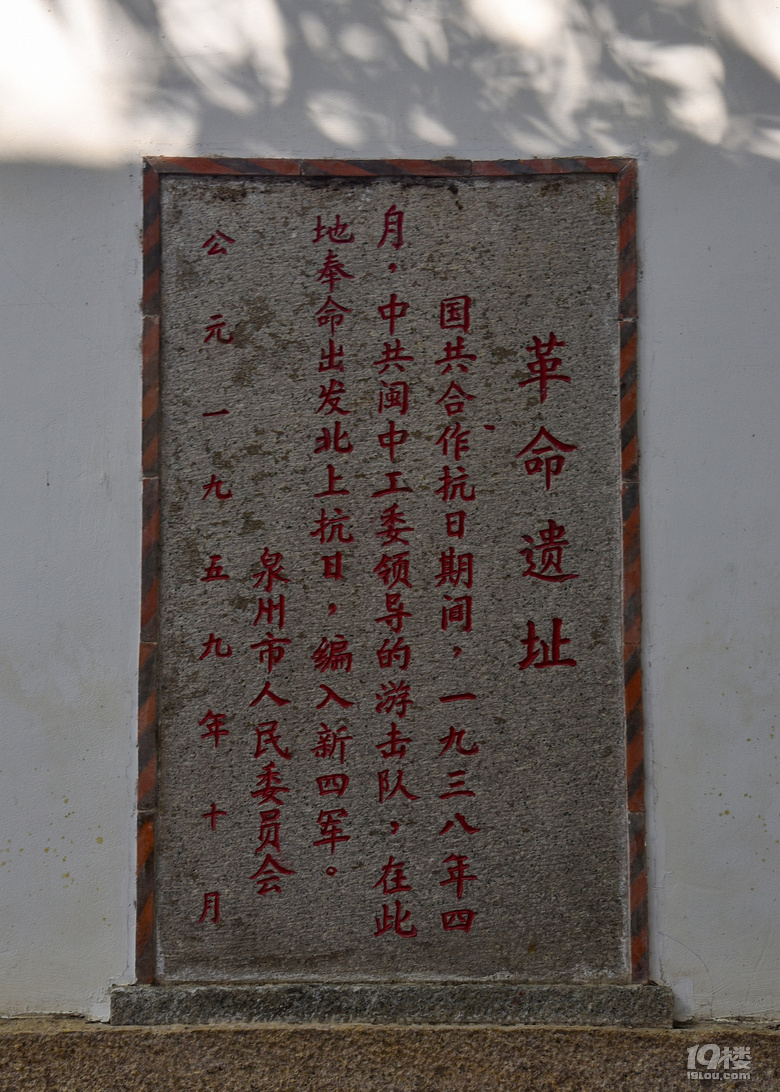 革命遗址
国共合作抗日期间，一九三八年四
月，中共闽中工委领导的游击队，在此
地奉命出发北上抗日，编入新四军。
泉州市人民委员会
公元一九五九年十月
19楼
19lou.com